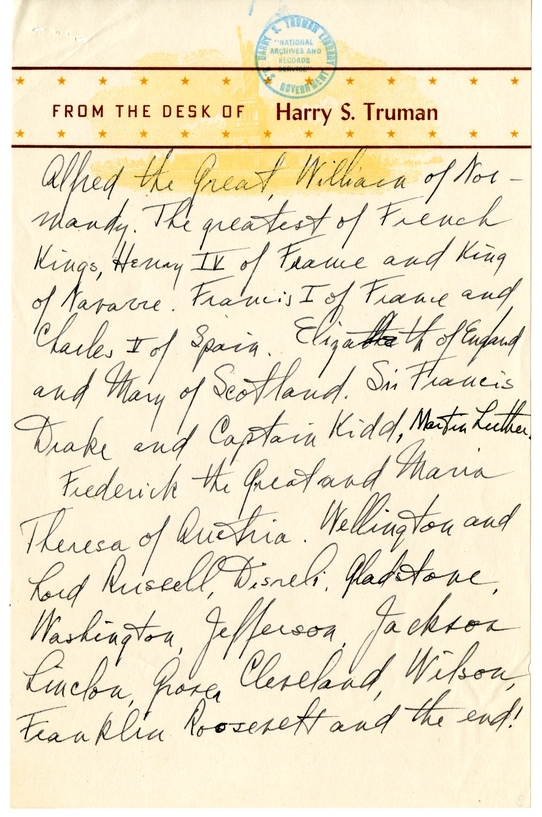 HARRY S. TRUMAN LIBRARY
"NATIONAL
ARCHIVES AND
RECORDS
SERVICE"
U.S. GOVERNMENT
FROM THE DESK OF Harry S. Truman
Alfred the Great, William of Nor-
mandy. The greatest of French
Kings, Henry IV of France and King
of Navarre. Francis I of France and
Charles V of Spain. Elizabeth of England
and Mary of Scotland. Sir Francis
Drake and Captain Kidd, Martin Luther.
Frederick the Great and Maria
Theresa of Austria. Wellington and
Lord Russell, Disreli, Gladstone,
Washington, Jefferson, Jackson
Lincoln, Grover Cleveland, Wilson,
Franklin Roosevelt and the end!